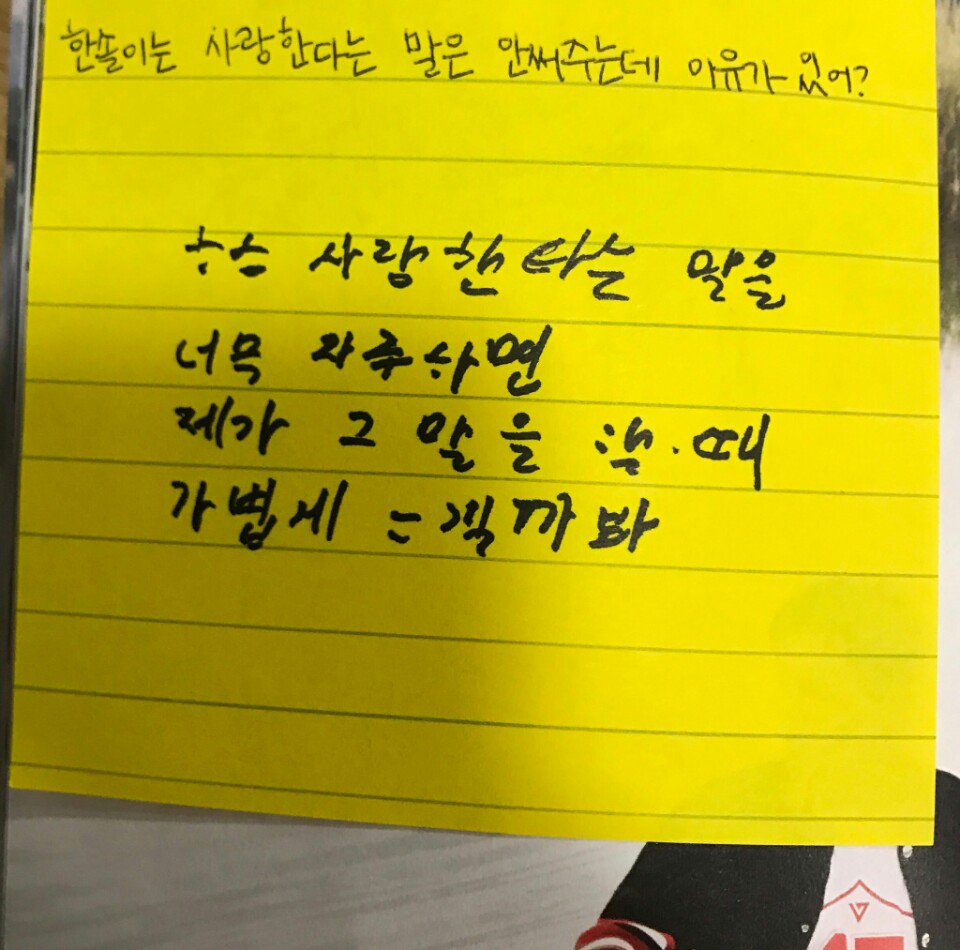 한솔이는 사랑한다는 말은 안써주는데 이유가 있어?
사랑한다는 말을
너무 자주하면
제가 그 말을 할 때
가볍게 느껴질까봐
17